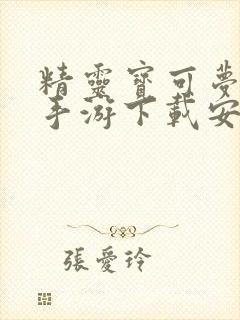 精靈寶可夢
手游下載安
張愛玲